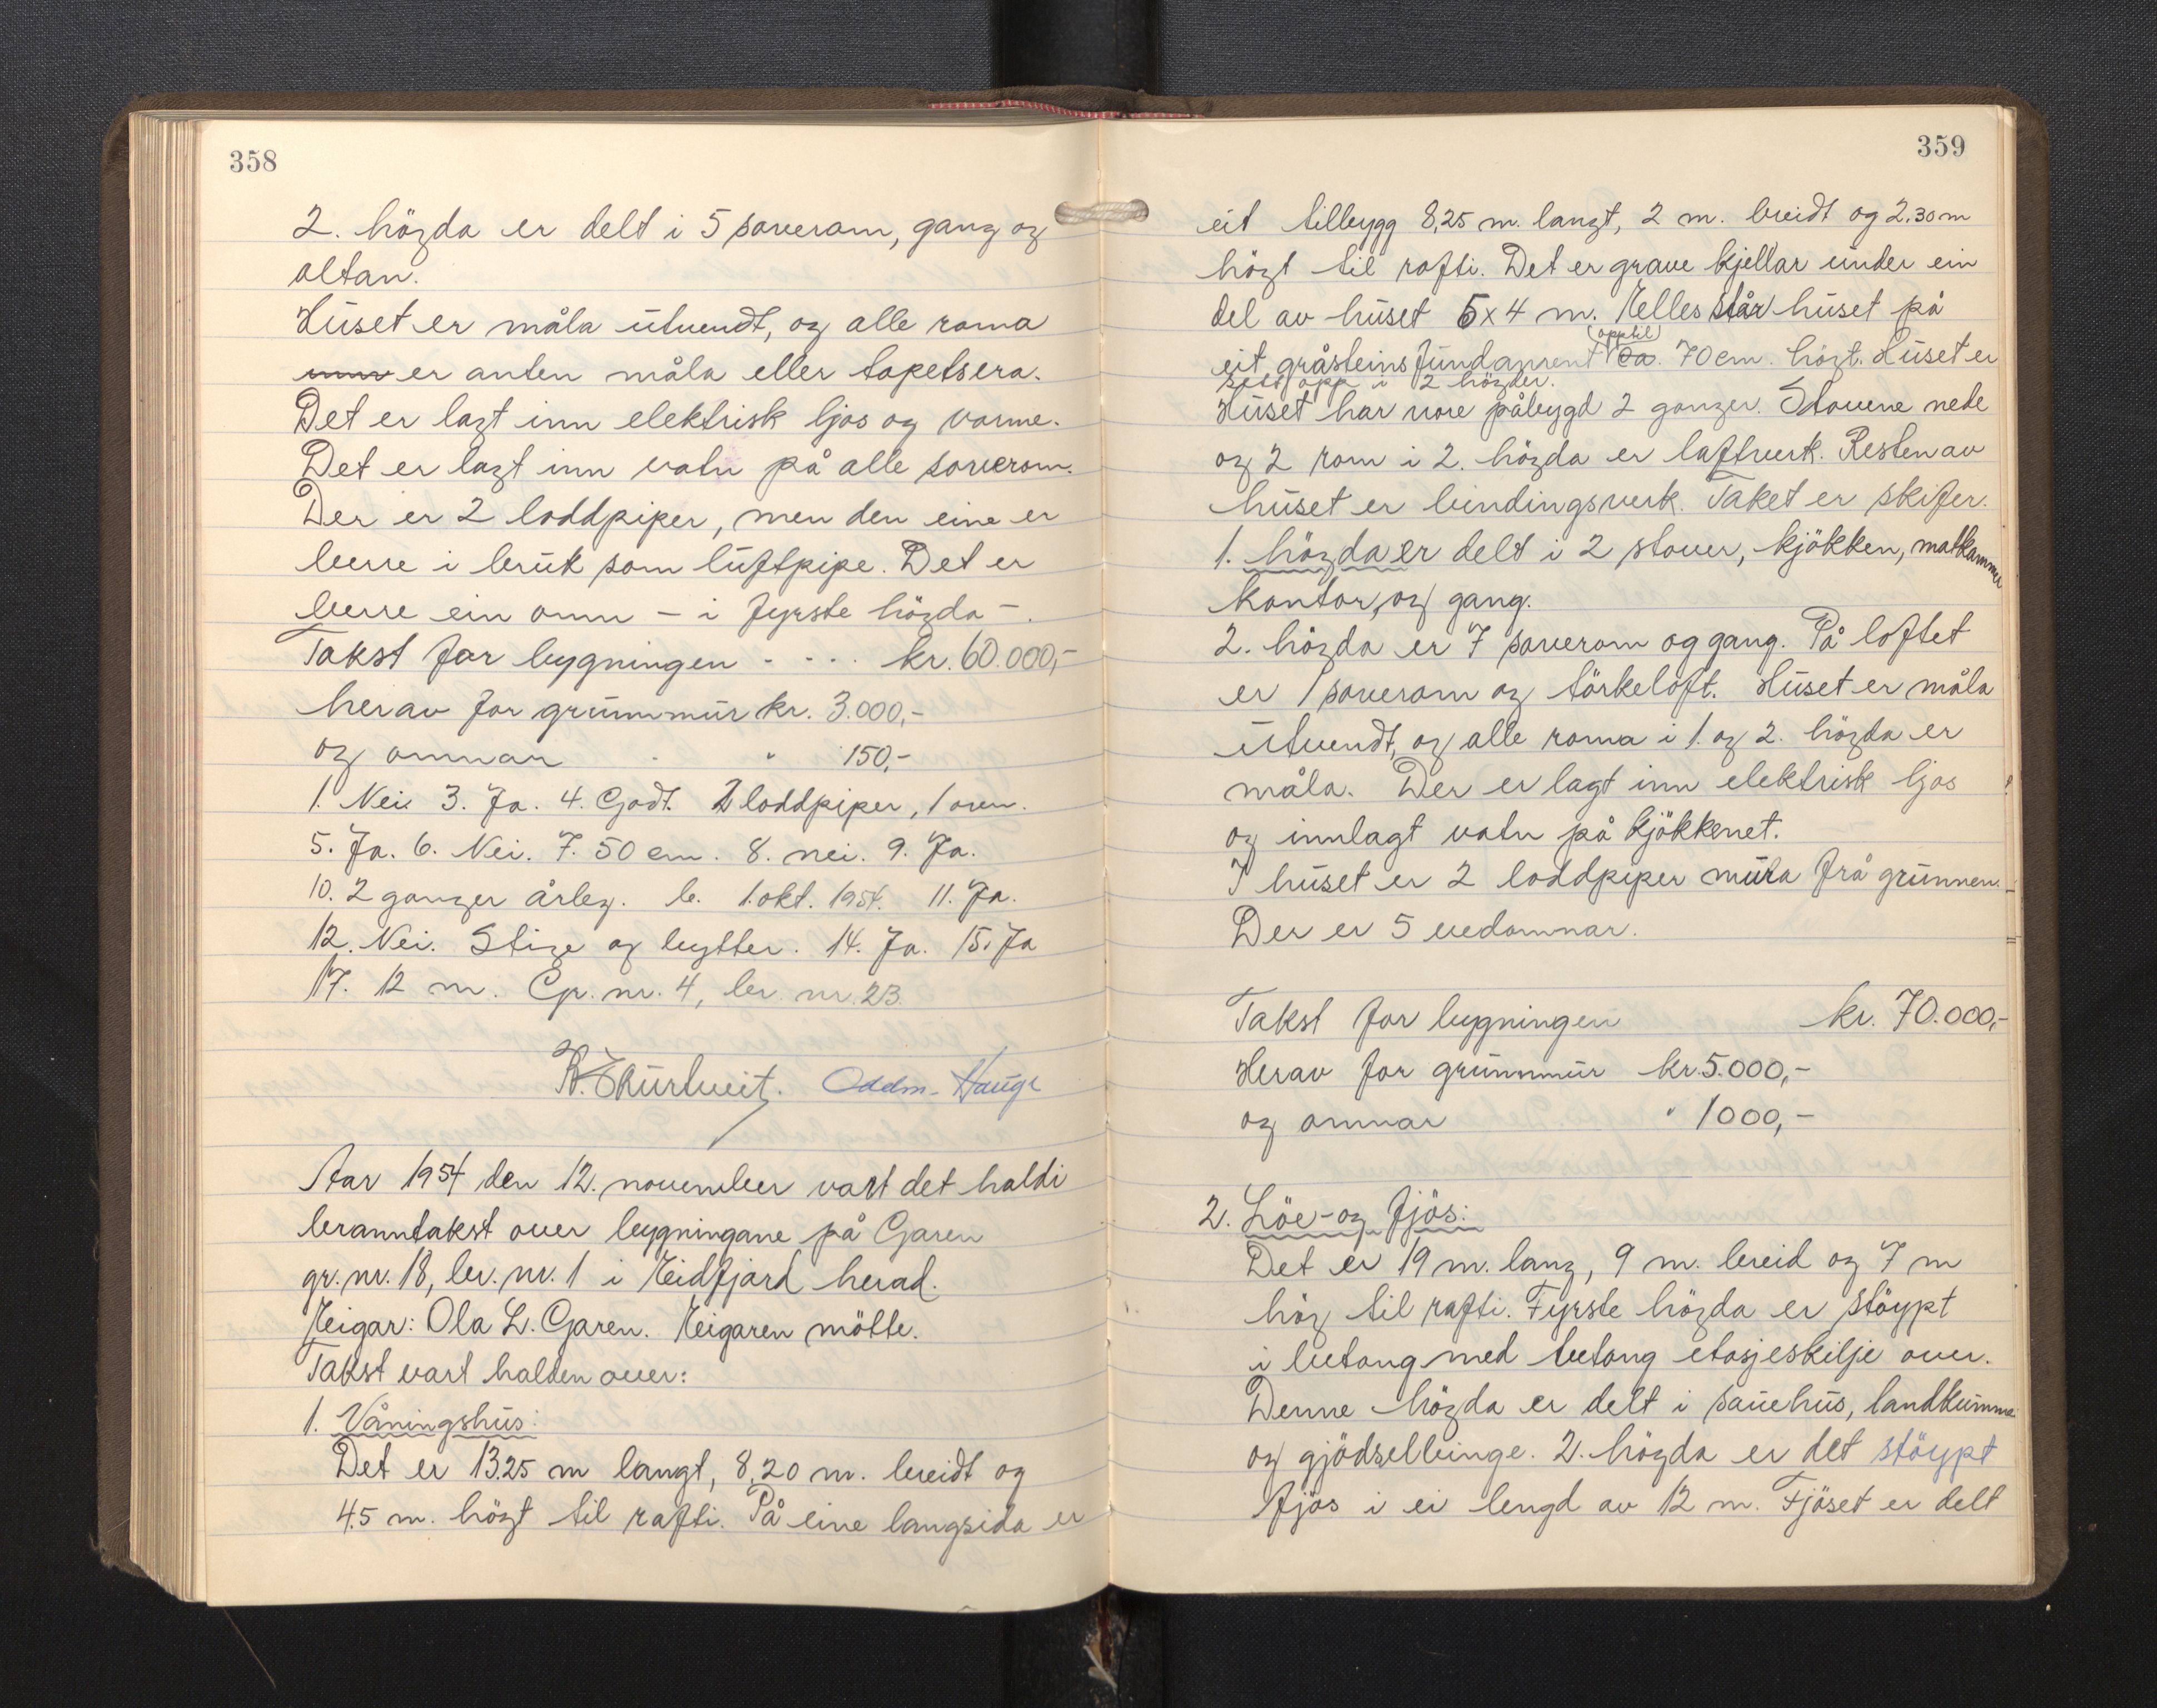 358
2. högda er delt i 5 soverom, gang og
altan.
Huset er måla utvendt, og alle roma
er anten måla eller tapetsera.
Det er lagt inn elektrisk ljos og varme.
Det er lagt inn vatn på alle soverom.
Der er 2 loddpiper, men den eine er
berre i bruk som luftpipe. Det er
berre ein omn – i fyrste högda –.
Takst for bygningen . . . . kr. 60.000,-
herav for grunnmur kr. 3.000,-
og omnar " 150,-
1. Nei 3. Ja. 4. Godt. 2 loddpiper, 1 ovn.
5. Ja. 6. Nei. 7. 50 cm. 8. nei. 9. Ja.
10. 2 ganger årleg. b. 1. okt. 1954. 11. Ja.
12. Nei. Stige og bytter. 14. Ja. 15. Ja
17. 12 m. Gr. nr. 4, br. nr. 23.
Oddm. Hauge
Aar 1954 den 12. november vart det haldi
branntakst over bygningane på Garen
gr. nr. 18, br. nr. 1 i Eidfjord herad.
Eigar: Ola L. Garen. Eigaren mötte.
Takst vart halden over:
1. Våningshus:
Det er 13.25 m langt, 8,20 m. breidt og
4.5 m. högt til rafti. På eine langsida er
359
eit tilbygg 8,25 m. langt, 2 m. breidt og 2.30 m
högt til rafti. Det er grave kjellar under ein
del av huset 5 x 4 m. Elles står huset på
eit gråsteinsfundament (opptil) ca. 70 cm. högt. Huset er
sett opp i 2 högder.
Huset har vore påbygd 2 ganger. Stovene nede
og 2 rom i 2. högda er laftverk. Resten av
huset er bindingsverk. Taket er skifer.
1. högda er delt i 2 stover, kjökken, matkammer
kontor, og gang.
2. högda er 7 soverom og gang. På loftet
er 1 soverom og törkeloft. Huset er måla
utvendt, og alle roma i 1. og 2. högda er
måla. Der er lagt inn elektrisk ljos
og innlagt vatn på kjökkenet.
I huset er 2 loddpiper mura frå grunnen.
Der er 5 vedomnar.
Takst for bygningen kr. 70.000,-
Herav for grunnmur kr. 5.000,-
og omnar " 1000,-
2. Löe- og fjös:
Det er 19 m. lang, 9 m. breid og 7 m
hög til rafti. Fyrste högda er stöypt
i betong med betong etasjeskilje over.
Denne högda er delt i sauehus, landkumme
og gjödselbinge. 2. högda er det stöypt
fjös i ei lengd av 12 m. Fjöset er delt